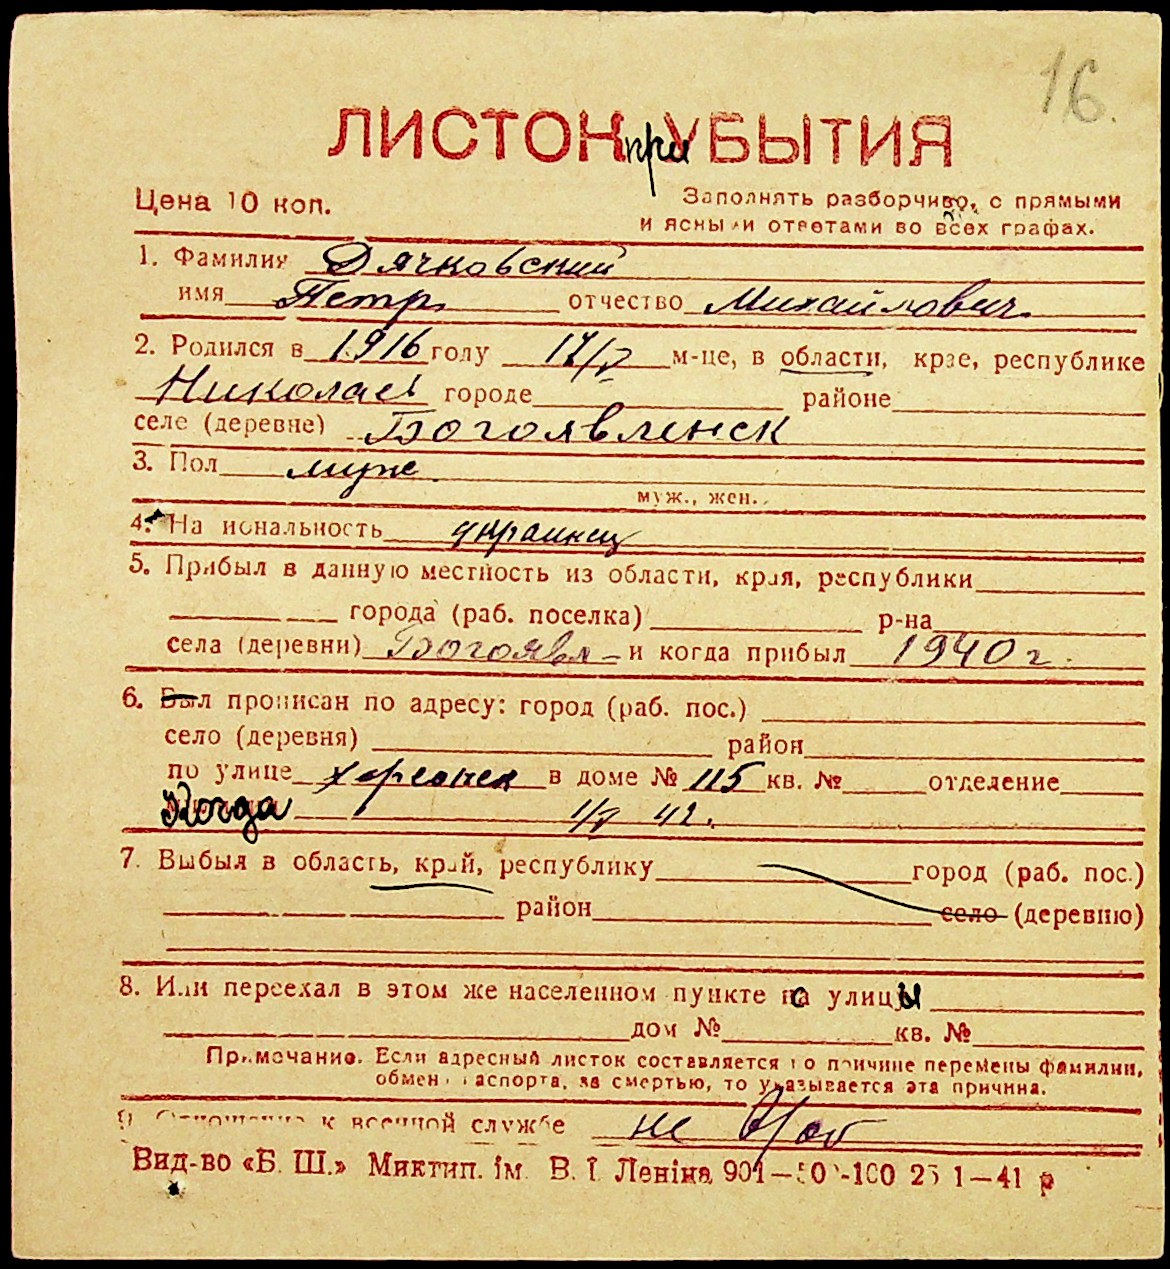 16.
ЛИСТОК при УБЫТИЯ
Цена 10 коп.
Заполнять разборчиво, с прямыми
и ясными ответами во всех графах.
1. Фамилия Дячковский
имя Петр отчество Михайлович
2. Родился в 1916 году 17/V м-це, в области, крае, республике
Николаев городе районе
селе (деревне) Богоявленск
3. Пол муж
муж., жен.
4. Национальность украинец
5. Прибыл в данную местность из области, края, республики
города (раб. поселка) р-на
села (деревни) Богоявл– и когда прибыл 1940 г.
6. Был прописан по адресу: город (раб. пос.)
село (деревня) район
по улице Херсонск в доме № 115 кв. № отделение
Когда 1/V 42.
7. Выбыл в область, край, республику город (раб. пос.)
район село (деревню)
8. Или переехал в этом же населенном пункте с улицы
дом № кв. №
Примечание. Если адресный листок составляется по причине перемены фамилии,
обмен паспорта, за смертью, то указывается эта причина.
9. Отношение к военной службе не
Вид-во «Б. Ш.» Миктип. ім. В. І. Леніна 901—50 -100 25 1—41 р